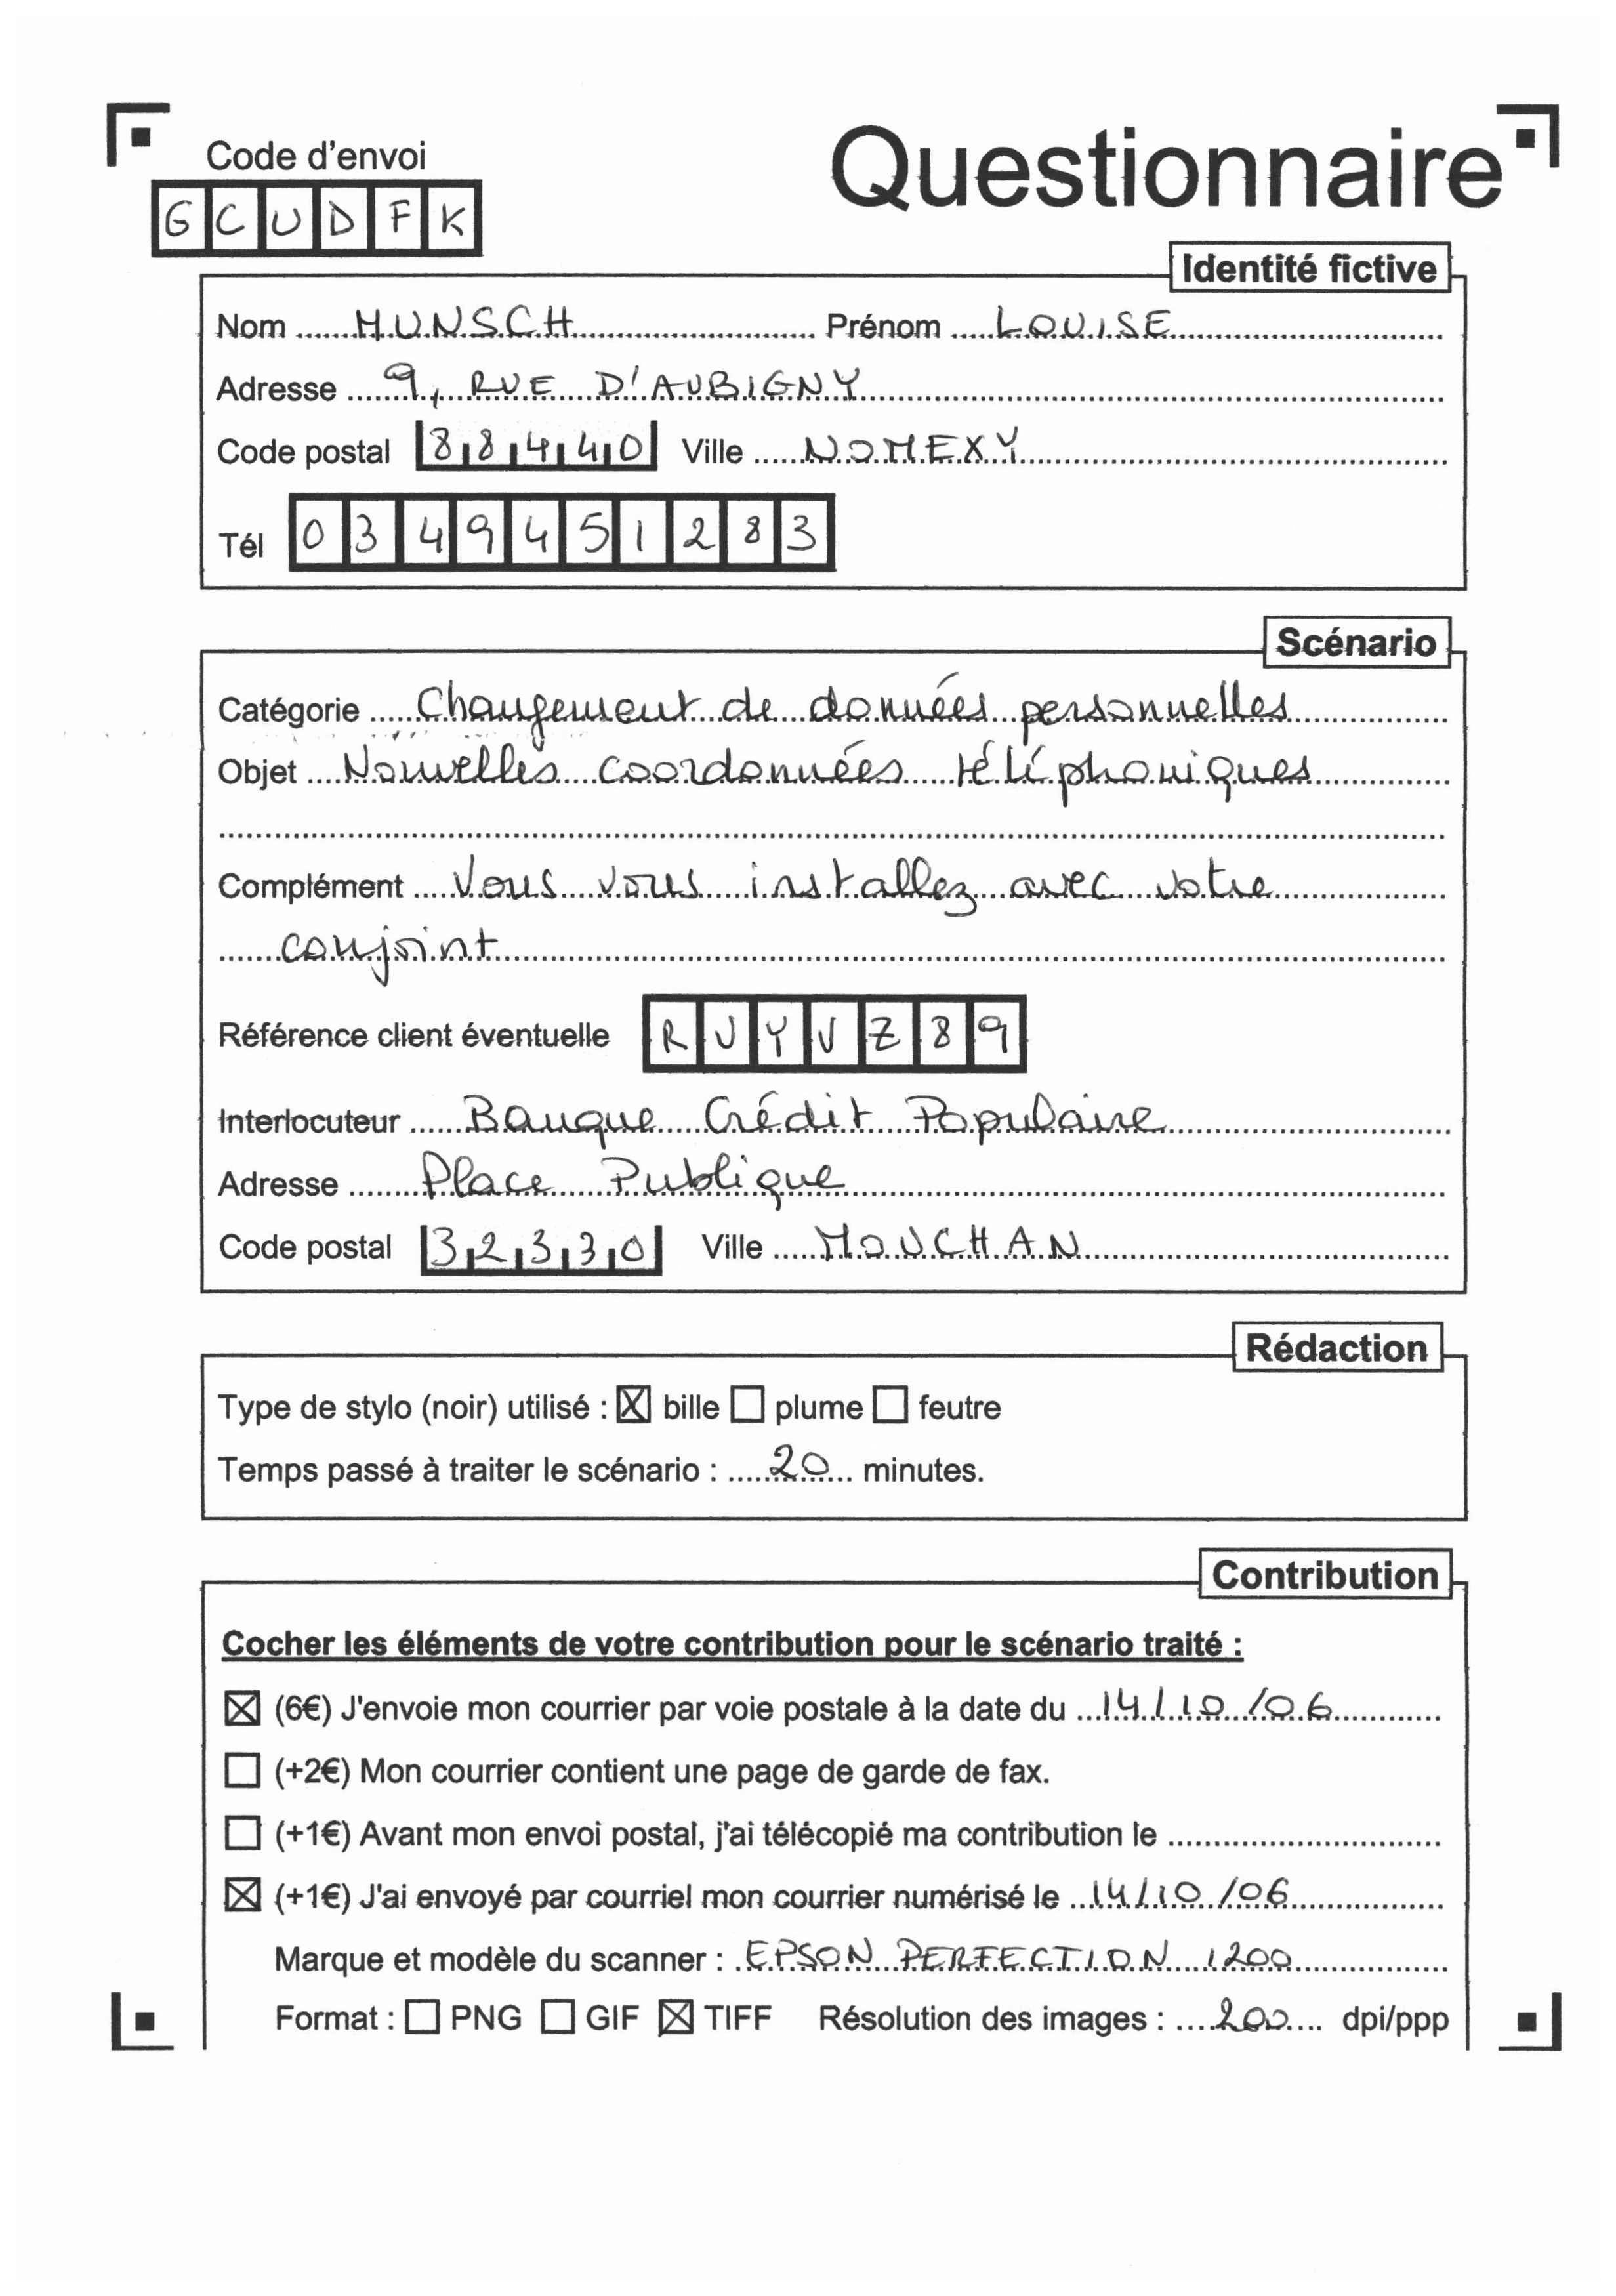 Code d'envoi
Questionnaire
GCUDFK
Identité fictive
Nom MUNSCH Prénom LOUISE
Adresse 9, RUE D'AUBIGNY
Code postal 88440 Ville NOMEXY
Tél 0349451283
Scénario
Catégorie Changement de données personnelles
Objet Nouvelles coordonnées téléphoniques
Complément Vous vous installez avec votre
conjoint
Référence client éventuelle RUYVZ89
Interlocuteur Banque Crédit Populaire
Adresse Place Publique
Code postal 32330 Ville MOUCHAN
Rédaction
Type de stylo (noir) utilisé : ☒ bille ☐ plume ☐ feutre
Temps passé à traiter le scénario : 20 minutes.
Contribution
Cocher les éléments de votre contribution pour le scénario traité :
☒ (6€) J'envoie mon courrier par voie postale à la date du 14/10/06
☐ (+2€) Mon courrier contient une page de garde de fax.
☐ (+1€) Avant mon envoi postal, j'ai télécopié ma contribution le
☒ (+1€) J'ai envoyé par courriel mon courrier numérisé le 14/10/06
Marque et modèle du scanner : EPSON PERFECTION 1200
Format : ☐ PNG ☐ GIF ☒ TIFF Résolution des images : 200 dpi/ppp